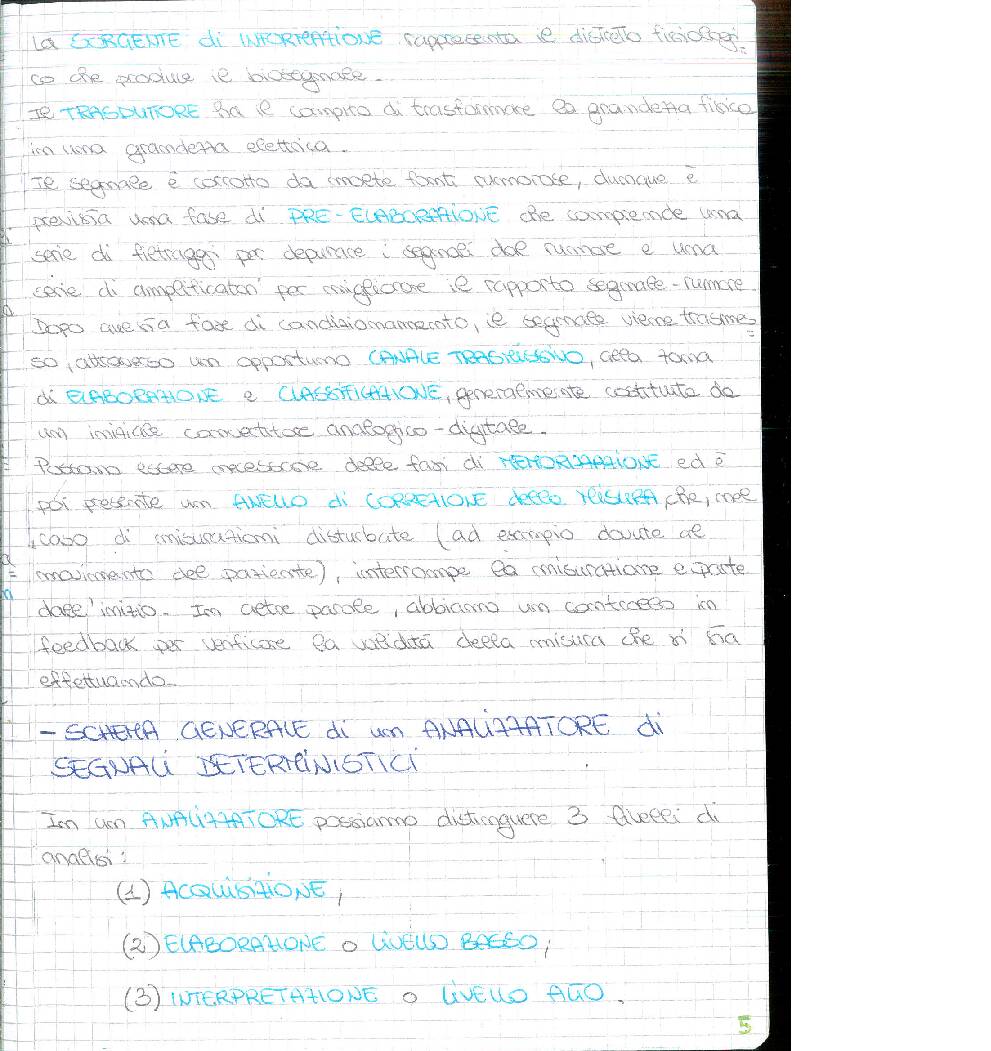 La SORGENTE di INFORMAZIONE rappresenta il distretto fisiologi=
co che produce il biosegnale.
Il TRASDUTTORE ha il compito di trasformare la grandezza fisica
in una grandezza elettrica.
Il segnale è corrotto da molte fonti rumorose, dunque è
prevista una fase di PRE-ELABORAZIONE che comprende una
serie di filtraggi per depurare i segnali dal rumore e una
serie di amplificatori per migliorare il rapporto segnale-rumore.
Dopo questa fase di condizionamento, il segnale viene trasmes=
so, attraverso un opportuno CANALE TRASMISSIVO, alla forma
di ELABORAZIONE e CLASSIFICAZIONE, generalmente costituita da
un iniziale convertitore analogico-digitale.
Possono essere necessarie delle fasi di MEMORIZZAZIONE ed è
poi presente un ANELLO di CORREZIONE della MISURA che, nel
caso di misurazioni disturbate (ad esempio dovute al
movimento del paziente), interrompe la misurazione e parte
dall'inizio. In altre parole, abbiamo un controllo in
feedback per verificare la validità della misura che si sta
effettuando.
- SCHEMA GENERALE di un ANALIZZATORE di
SEGNALI DETERMINISTICI
In un ANALIZZATORE possiamo distinguere 3 livelli di
analisi:
(1) ACQUISIZIONE,
(2) ELABORAZIONE o LIVELLO BASSO,
(3) INTERPRETAZIONE o LIVELLO ALTO.
5